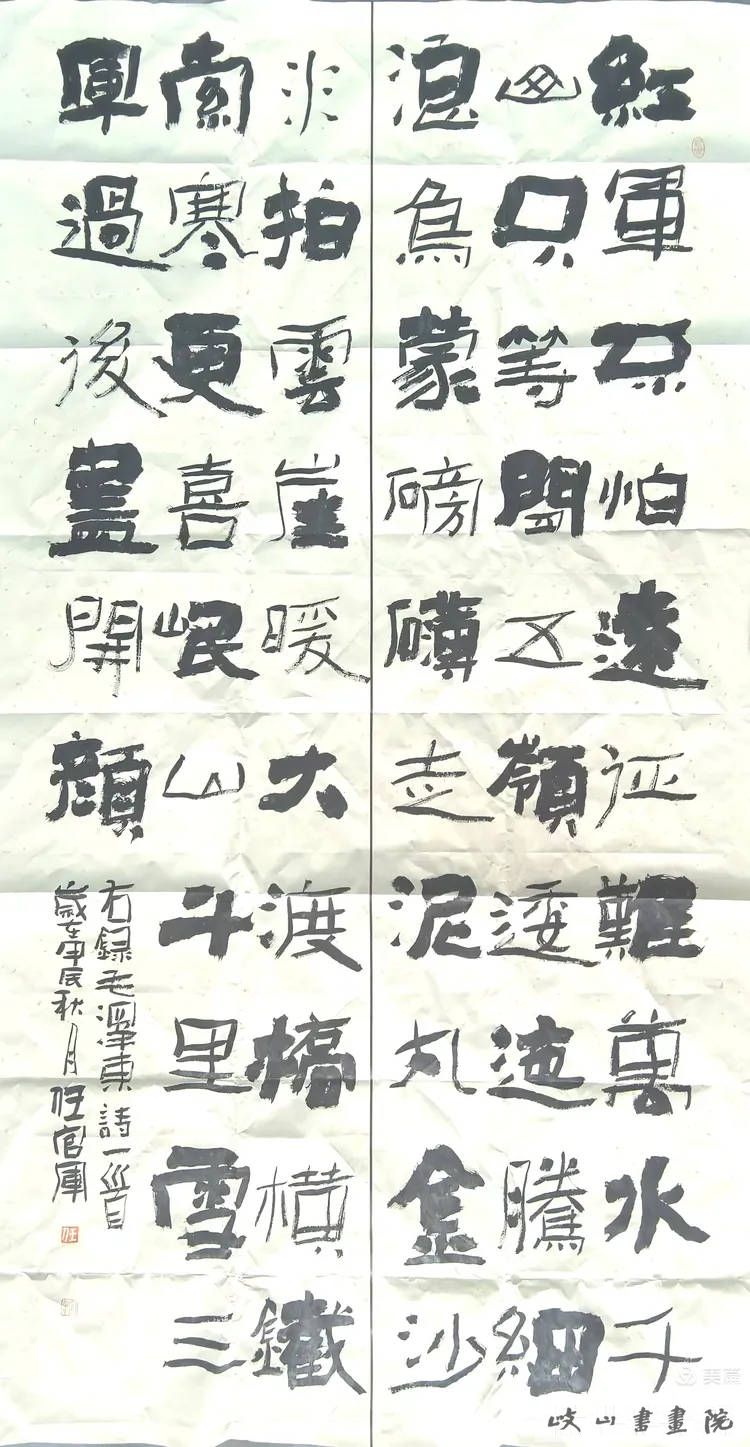 紅軍不怕遠征難萬水千
山只等閒五嶺逶迤騰細
浪烏蒙磅礴走泥丸金沙
水拍雲崖暖大渡橋橫鐵
索寒更喜岷山千里雪三
軍過後盡開顏
右錄毛澤東詩一首
歲在甲辰秋月任官軍
任
美篇
岐山書畫院